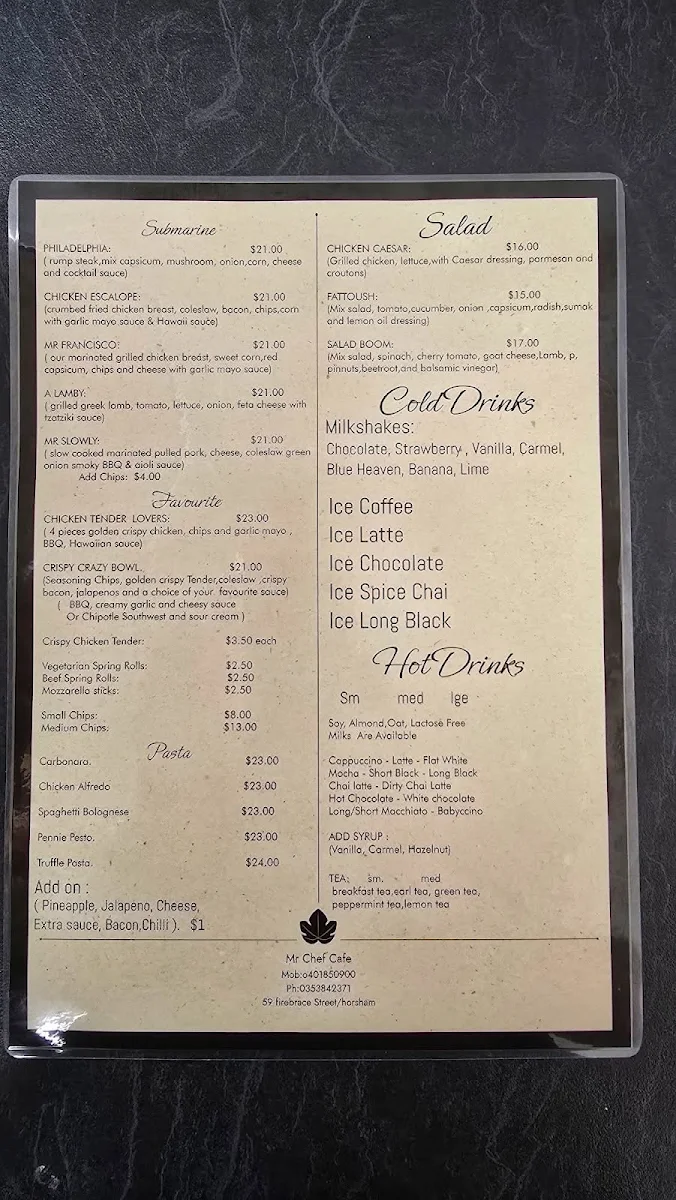 Submarine
PHILADELPHIA: $21.00
( rump steak,mix capsicum, mushroom, onion,corn, cheese
and cocktail sauce)
CHICKEN ESCALOPE: $21.00
(crumbed fried chicken breast, coleslaw, bacon, chips,corn
with garlic mayo sauce & Hawaii sauce)
MR FRANCISCO: $21.00
( our marinated grilled chicken breast, sweet corn,red
capsicum, chips and cheese with garlic mayo sauce)
A LAMBY: $21.00
( grilled greek lamb, tomato, lettuce, onion, feta cheese with
tzatziki sauce)
MR SLOWLY: $21.00
( slow cooked marinated pulled pork, cheese, coleslaw green
onion smoky BBQ & aioli sauce)
Add Chips: $4.00
Favourite
CHICKEN TENDER LOVERS: $23.00
( 4 pieces golden crispy chicken, chips and garlic mayo ,
BBQ, Hawaiian sauce)
CRISPY CRAZY BOWL. $21.00
(Seasoning Chips, golden crispy Tender,coleslaw ,crispy
bacon, jalapenos and a choice of your favourite sauce)
( BBQ, creamy garlic and cheesy sauce
Or Chipotle Southwest and sour cream )
Crispy Chicken Tender: $3.50 each
Vegetarian Spring Rolls: $2.50
Beef Spring Rolls: $2.50
Mozzarella sticks: $2.50
Small Chips: $8.00
Medium Chips: $13.00
Pasta
Carbonara. $23.00
Chicken Alfredo $23.00
Spaghetti Bolognese $23.00
Pennie Pesto. $23.00
Truffle Pasta. $24.00
Add on :
( Pineapple, Jalapeno, Cheese,
Extra sauce, Bacon,Chilli ). $1
Salad
CHICKEN CAESAR: $16.00
(Grilled chicken, lettuce,with Caesar dressing, parmesan and
croutons)
FATTOUSH: $15.00
(Mix salad, tomato,cucumber, onion ,capsicum,radish,sumak
and lemon oil dressing)
SALAD BOOM: $17.00
(Mix salad, spinach, cherry tomato, goat cheese,Lamb, p,
pinnuts,beetroot,and balsamic vinegar)
Cold Drinks
Milkshakes:
Chocolate, Strawberry , Vanilla, Carmel,
Blue Heaven, Banana, Lime
Ice Coffee
Ice Latte
Ice Chocolate
Ice Spice Chai
Ice Long Black
Hot Drinks
Sm med lge
Soy, Almond,Oat, Lactose Free
Milks Are Available
Cappuccino - Latte - Flat White
Mocha - Short Black - Long Black
Chai latte - Dirty Chai Latte
Hot Chocolate - White chocolate
Long/Short Macchiato - Babyccino
ADD SYRUP :
(Vanilla, Carmel, Hazelnut)
TEA: sm. med
breakfast tea,earl tea, green tea,
peppermint tea,lemon tea
Mr Chef Cafe
Mob:o401850900
Ph:0353842371
59 firebrace Street/horsham